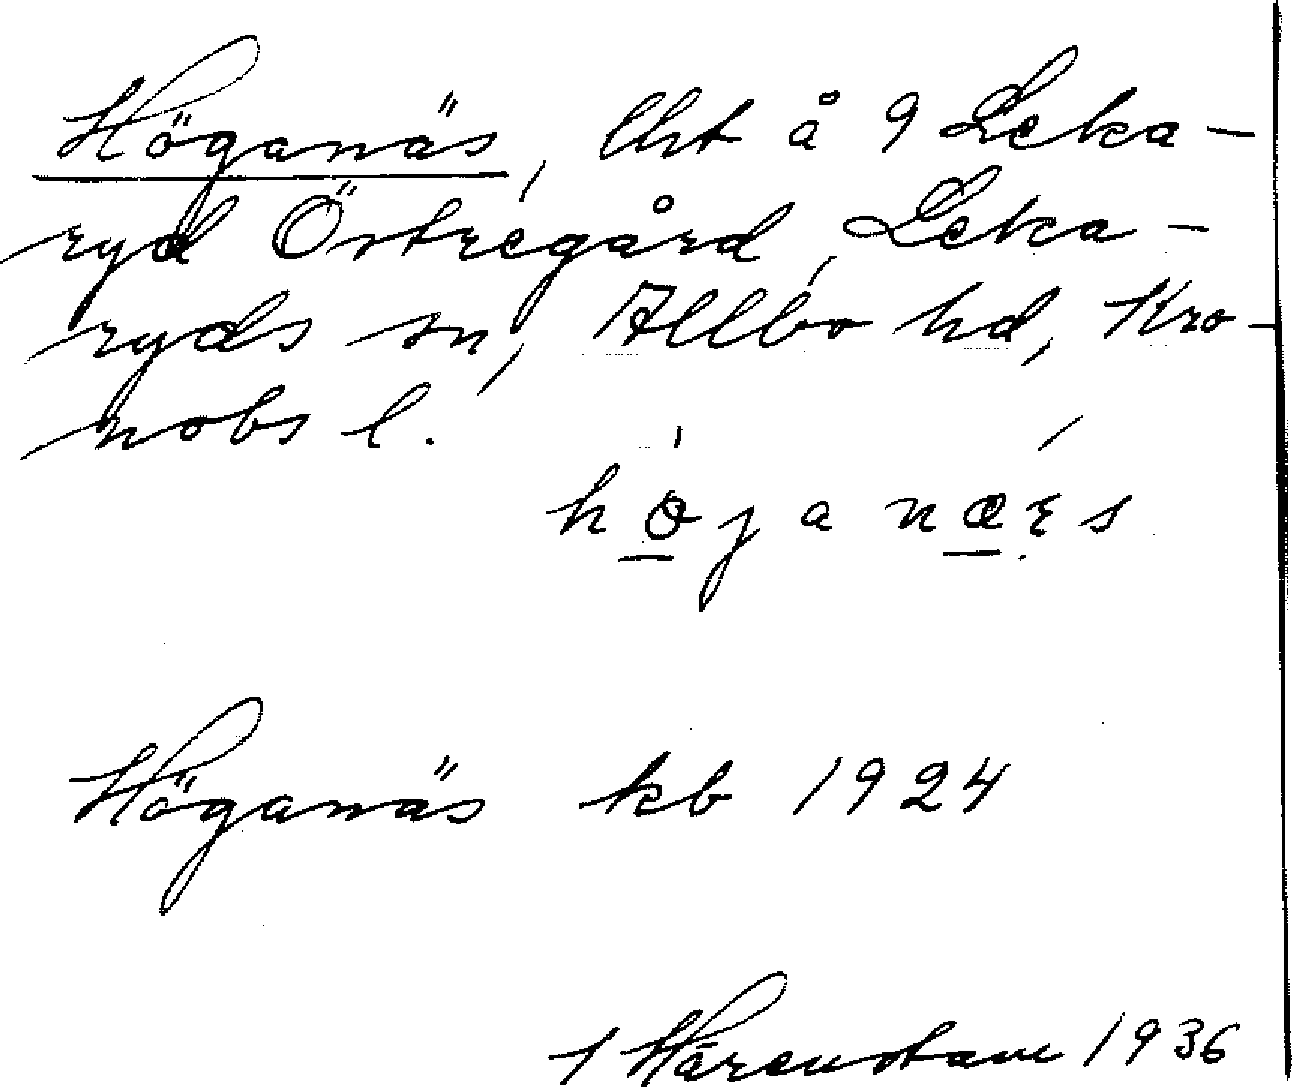 Höganäs, lht å 9 Leka-
ryd Östregård, Leka-
ryds sn, Allbo hd, Kro-
nobs l.
Höganäs kb 1924
1936